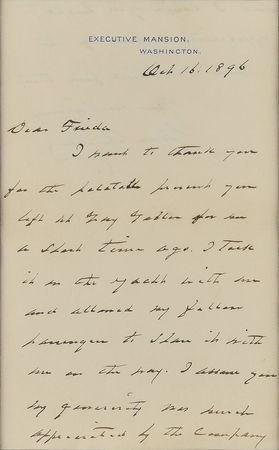 EXECUTIVE MANSION,
WASHINGTON.
Oct 16. 1896
Dear Frieda
I want to thank you
for the palatable present you
left at Gray Gables for me
a short time ago. I took
it on the Yacht with me
and allowed my fellow
passengers to share it with
me on the way. I assure you
my generosity was much
appreciated by the Company